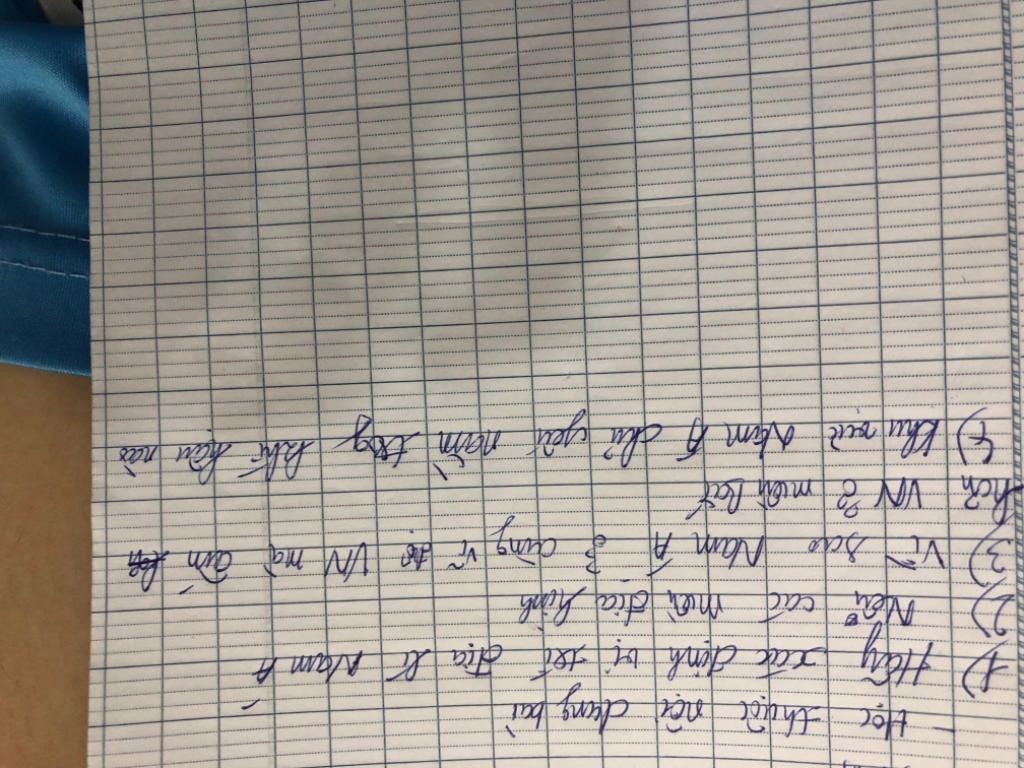 - Học thuộc nội dung bài
1) Hãy xác định vị trí địa lí Nam Á
2) Nêu các miền địa hình
3) Vì sao Nam Á cùng vĩ độ VN mà ấm
hơn VN ở miền Bắc
4) Khu vực Nam Á chủ yếu nằm trog khí hậu nào